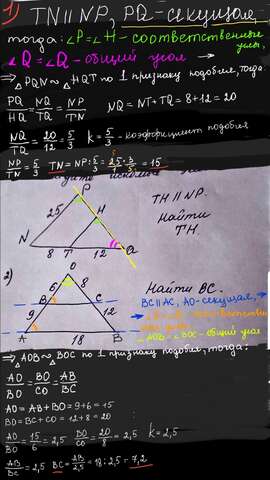 1) TN ∥ NP, PQ - секущая,
тогда: ∠P = ∠H - соответственные углы,
∠Q = ∠Q - общий угол ⇒
⇒ △PQN ~ △HQT по 1 признаку подобия, тогда:
PQ/HQ = NQ/TQ = NP/TN NQ = NT + TQ = 8 + 12 = 20
NQ/TQ = 20/12 = 5/3 k = 5/3 - коэффициент подобия
NP/TN = 5/3 TN = NP : 5/3 = 25·3/5 = 15
P
25 H TH ∥ NP.
Найти
TH.
N 8 T 12 Q
2) O
6 8 Найти BC.
B C BC ∥ AC, AO - секущая, ⇒
9 12
A 18 B - общий угол
⇒ △AOB ~ △BOC по 1 признаку подобия, тогда:
AO/BO = BO/CO = AB/BC
AO = AB + BO = 9 + 6 = 15
BO = BC + CO = 12 + 8 = 20
AO/BO = 15/6 = 2,5 BO/CO = 20/8 = 2,5 k = 2,5
AB/BC = 2,5 BC = AB/2,5 = 18 : 2,5 = 7,2